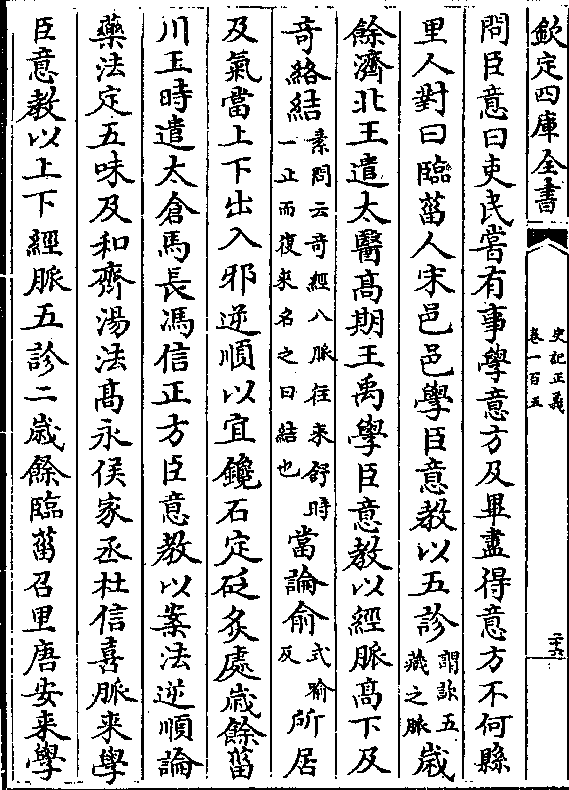 欽定四庫全書
史記正義
卷一百五
二十六
問臣意曰吏民嘗有事學意方及畢盡得意方不何縣
里人對曰臨菑人宋邑邑學臣意教以五診謂診五藏之脈歲
餘濟北王遣太醫高期王禹學臣意教以經脈高下及
奇絡結素問云奇經八脈往來舒時一止而復來名之曰結也當論俞式喻反所居
及氣當上下出入邪逆順以宜鑱石定砭灸處歲餘菑
川王時遣太倉馬長馮信正方臣意教以案法逆順論
藥法定五味及和齊湯法高永侯家丞杜信喜脈來學
臣意教以上下經脈五診二歲餘臨菑召里唐安來學